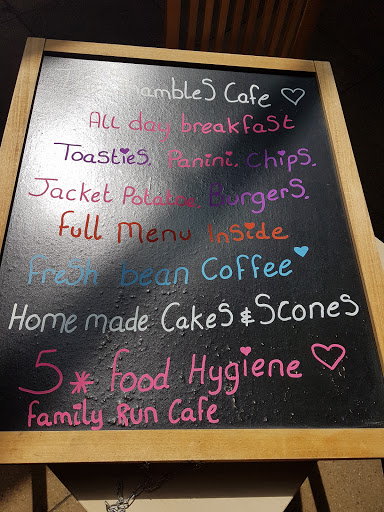 Cafe
All day breakfast
Toasties. Panini. Chips.
Jacket Potatoe Burgers.
Full Menu Inside
Fresh bean Coffee
Home made Cakes & Scones
5* food Hygiene
Family Run Cafe